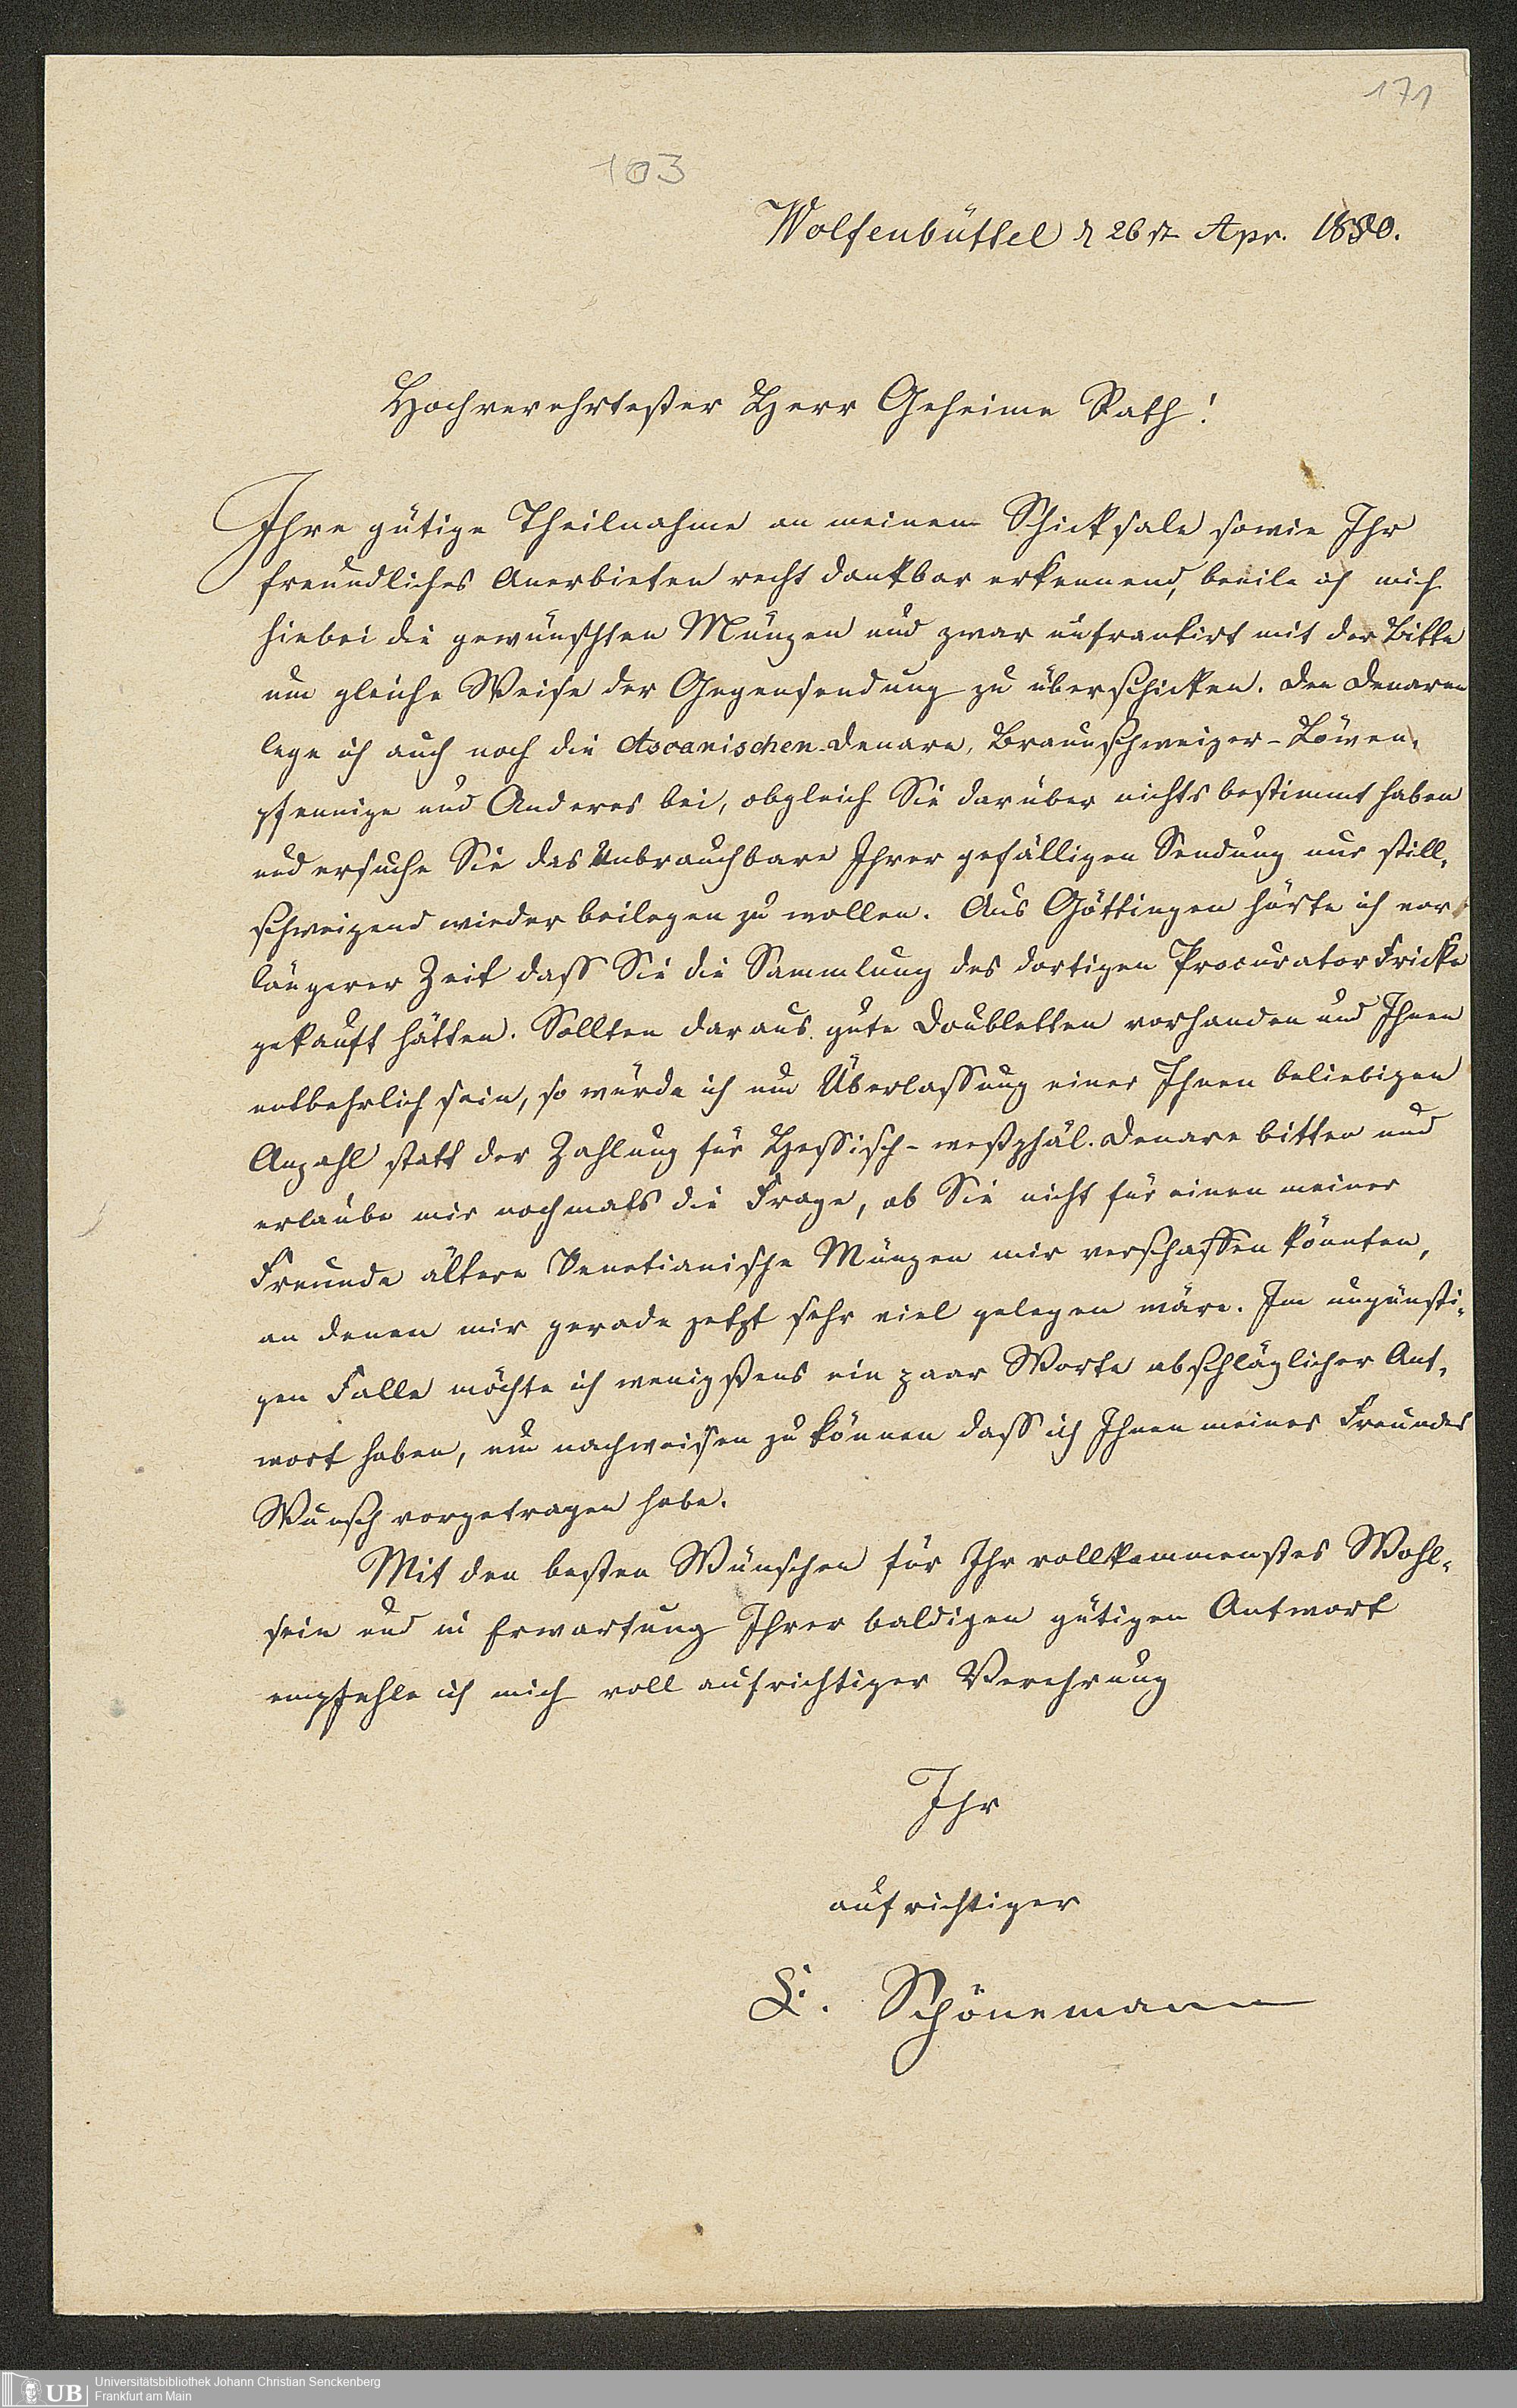 171
103
Wolfenbüttel d 26st Apr. 1850.
Hochverehrtester Herr Geheime Rath!
Ihre gütige Theilnahme an meinem Schicksale sowie Ihr
freundliches Anerbieten recht dankbar erkennend, beeile ich mich
hiebei die gewünschten Münzen und zwar unfrankirt mit der Bitte
um gleiche Weise der Gegensendung zu überschicken. Den Denaren
lege ich auch noch die Ascanischen Denare, Braunschweiger-Löwen-
pfennige und Anderes bei, obgleich Sie darüber nichts bestimmt haben
und ersuche Sie das Unbrauchbare Ihrer gefälligen Sendung nur still-
schweigend wieder beilegen zu wollen. Aus Göttingen hörte ich vor
längerer Zeit dass Sie die Sammlung des dortigen Procurator Fricke
gekauft hätten. Sollten daraus gute Doubletten vorhanden und Ihnen
entbehrlich sein, so würde ich um Überlassung einer Ihnen beliebigen
Anzahl statt der Zahlung für Hessisch-westphäl. Denare bitten und
erlaube mir nochmals die Frage, ob Sie nicht für einen meiner
Freunde ältere Venetianische Münzen mir verschaffen könnten,
an denen mir gerade jetzt sehr viel gelegen wäre. Im ungünsti-
gen Falle möchte ich wenigstens ein paar Worte abschläglicher Ant-
wort haben, um nachweisen zu können dass ich Ihnen meines Freundes
Wunsch vorgetragen habe.
Mit den besten Wünschen für Ihr vollkommenstes Wohl-
sein und in Erwartung Ihrer baldigen gütigen Antwort
empfehle ich mich voll aufrichtiger Verehrung
Ihr
aufrichtiger
Schönemann
UB
Universitätsbibliothek Johann Christian Senckenberg
Frankfurt am Main